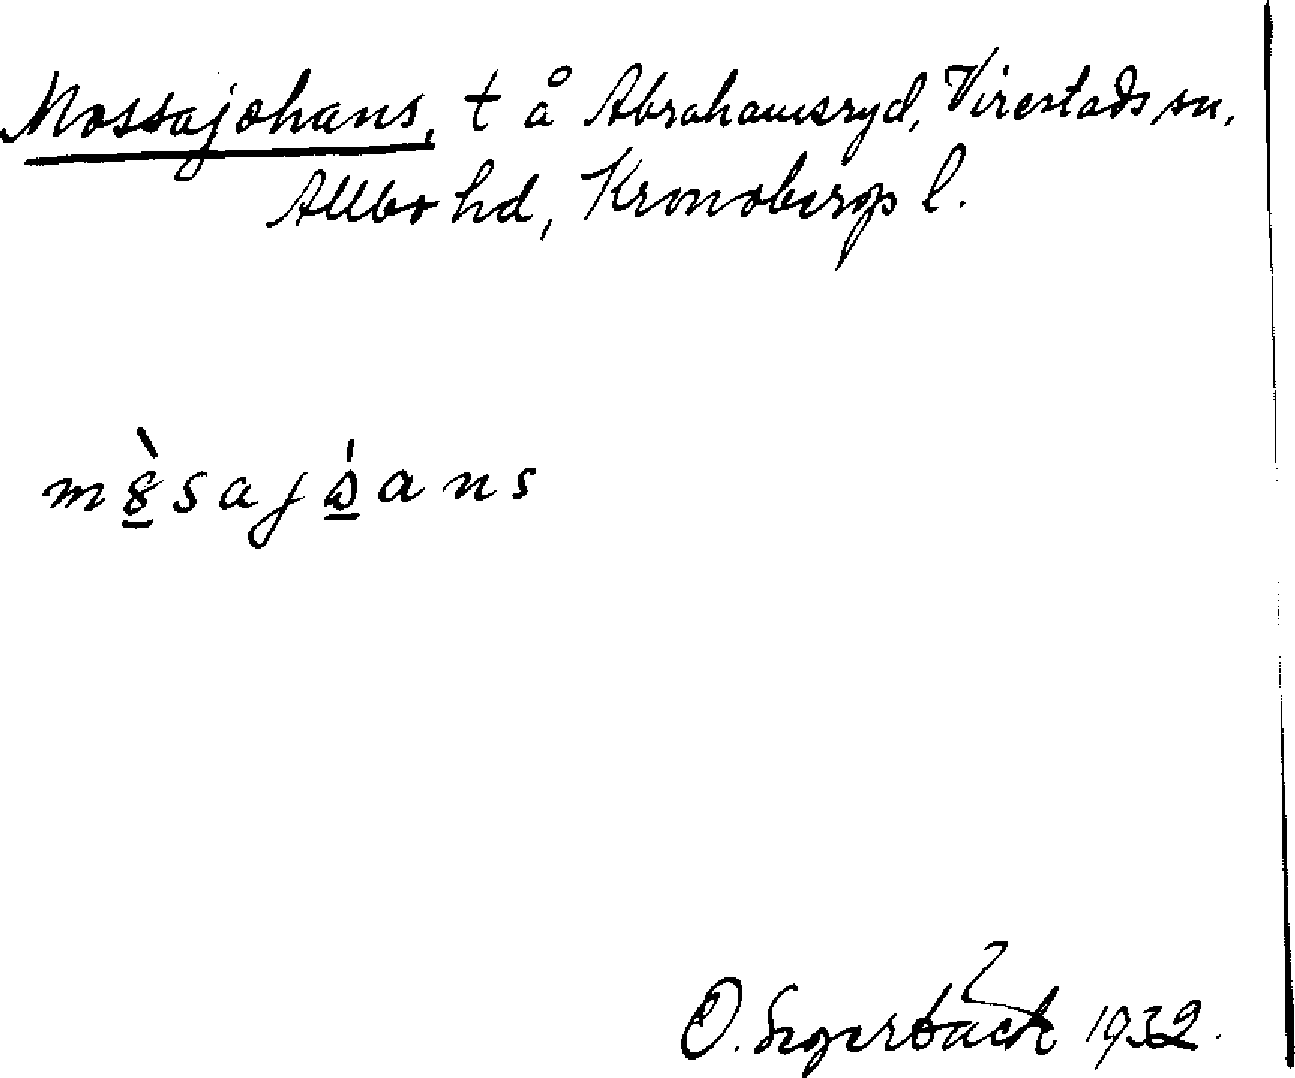 Mossajohans, t å Abrahamsryd, Virestads sn,
Allbo hd, Kronobergs l.
O. Segerbäck 1932.